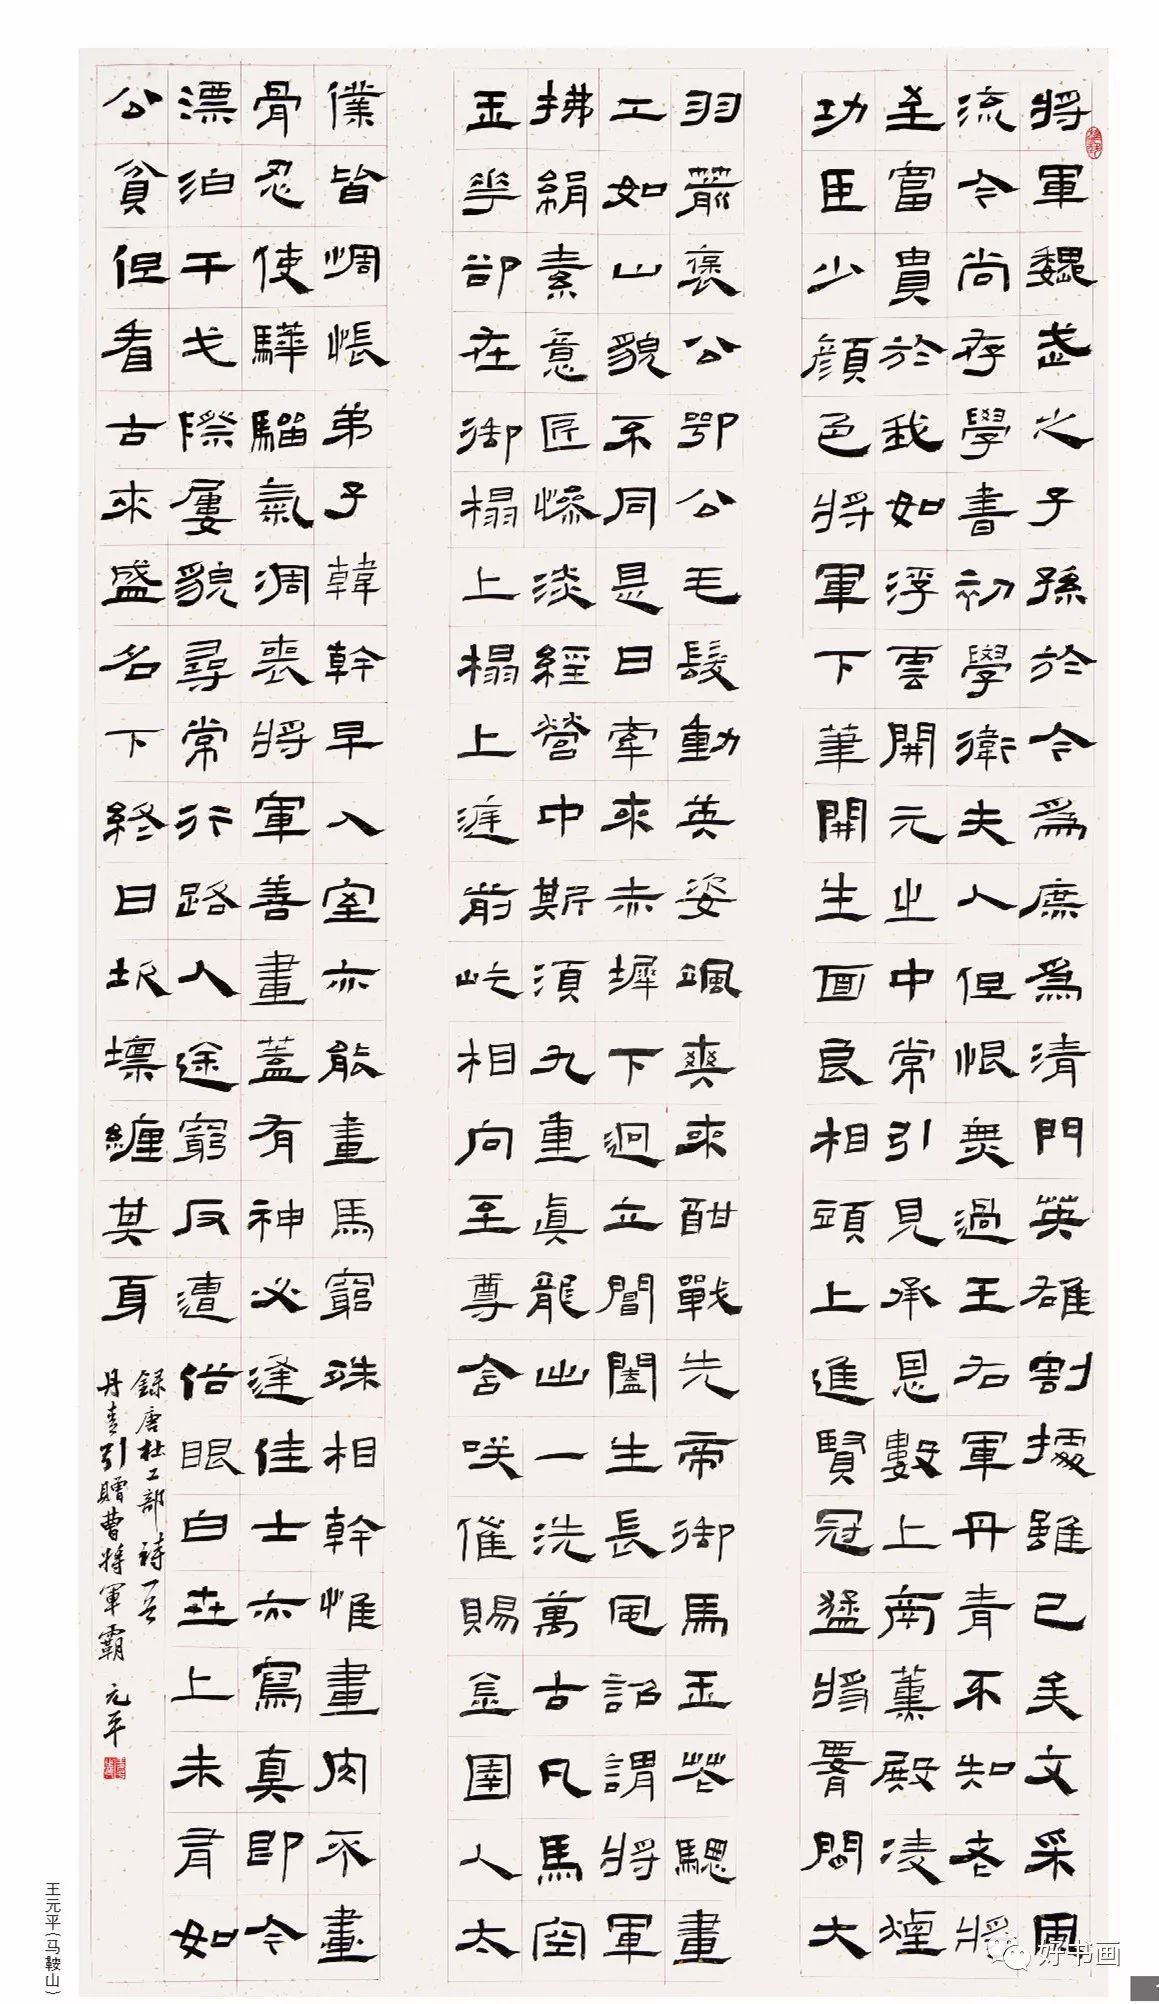 將軍魏武之子孫於今爲庶爲清門英雄割據雖已矣文采風
流今尚存學書初學衛夫人但恨無過王右軍丹青不知老將
至富貴於我如浮雲開元之中常引見承恩數上南薰殿凌煙
功臣少顏色將軍下筆開生面良相頭上進賢冠猛將腰間大
羽箭褒公鄂公毛髮動英姿颯爽來酣戰先帝御馬玉花驄畫
工如山貌不同是日牽來赤墀下迥立閶闔生長風詔謂將軍
拂絹素意匠慘淡經營中斯須九重真龍出一洗萬古凡馬空
玉華卻在御榻上榻上庭前屹相向至尊含咲催賜金圉人太
僕皆惆悵弟子韓幹早入室亦能畫馬窮殊相幹惟畫肉不畫
骨忍使驊騮氣凋喪將軍善畫蓋有神必逢佳士亦寫真即今
漂泊干戈際屢貌尋常行路人途窮反遭俗眼白世上未有如
公貧但看古來盛名下終日坎壈纏其身
錄唐杜工部詩一首
丹青引贈曹將軍霸 元平
王元平(马鞍山)
好书画